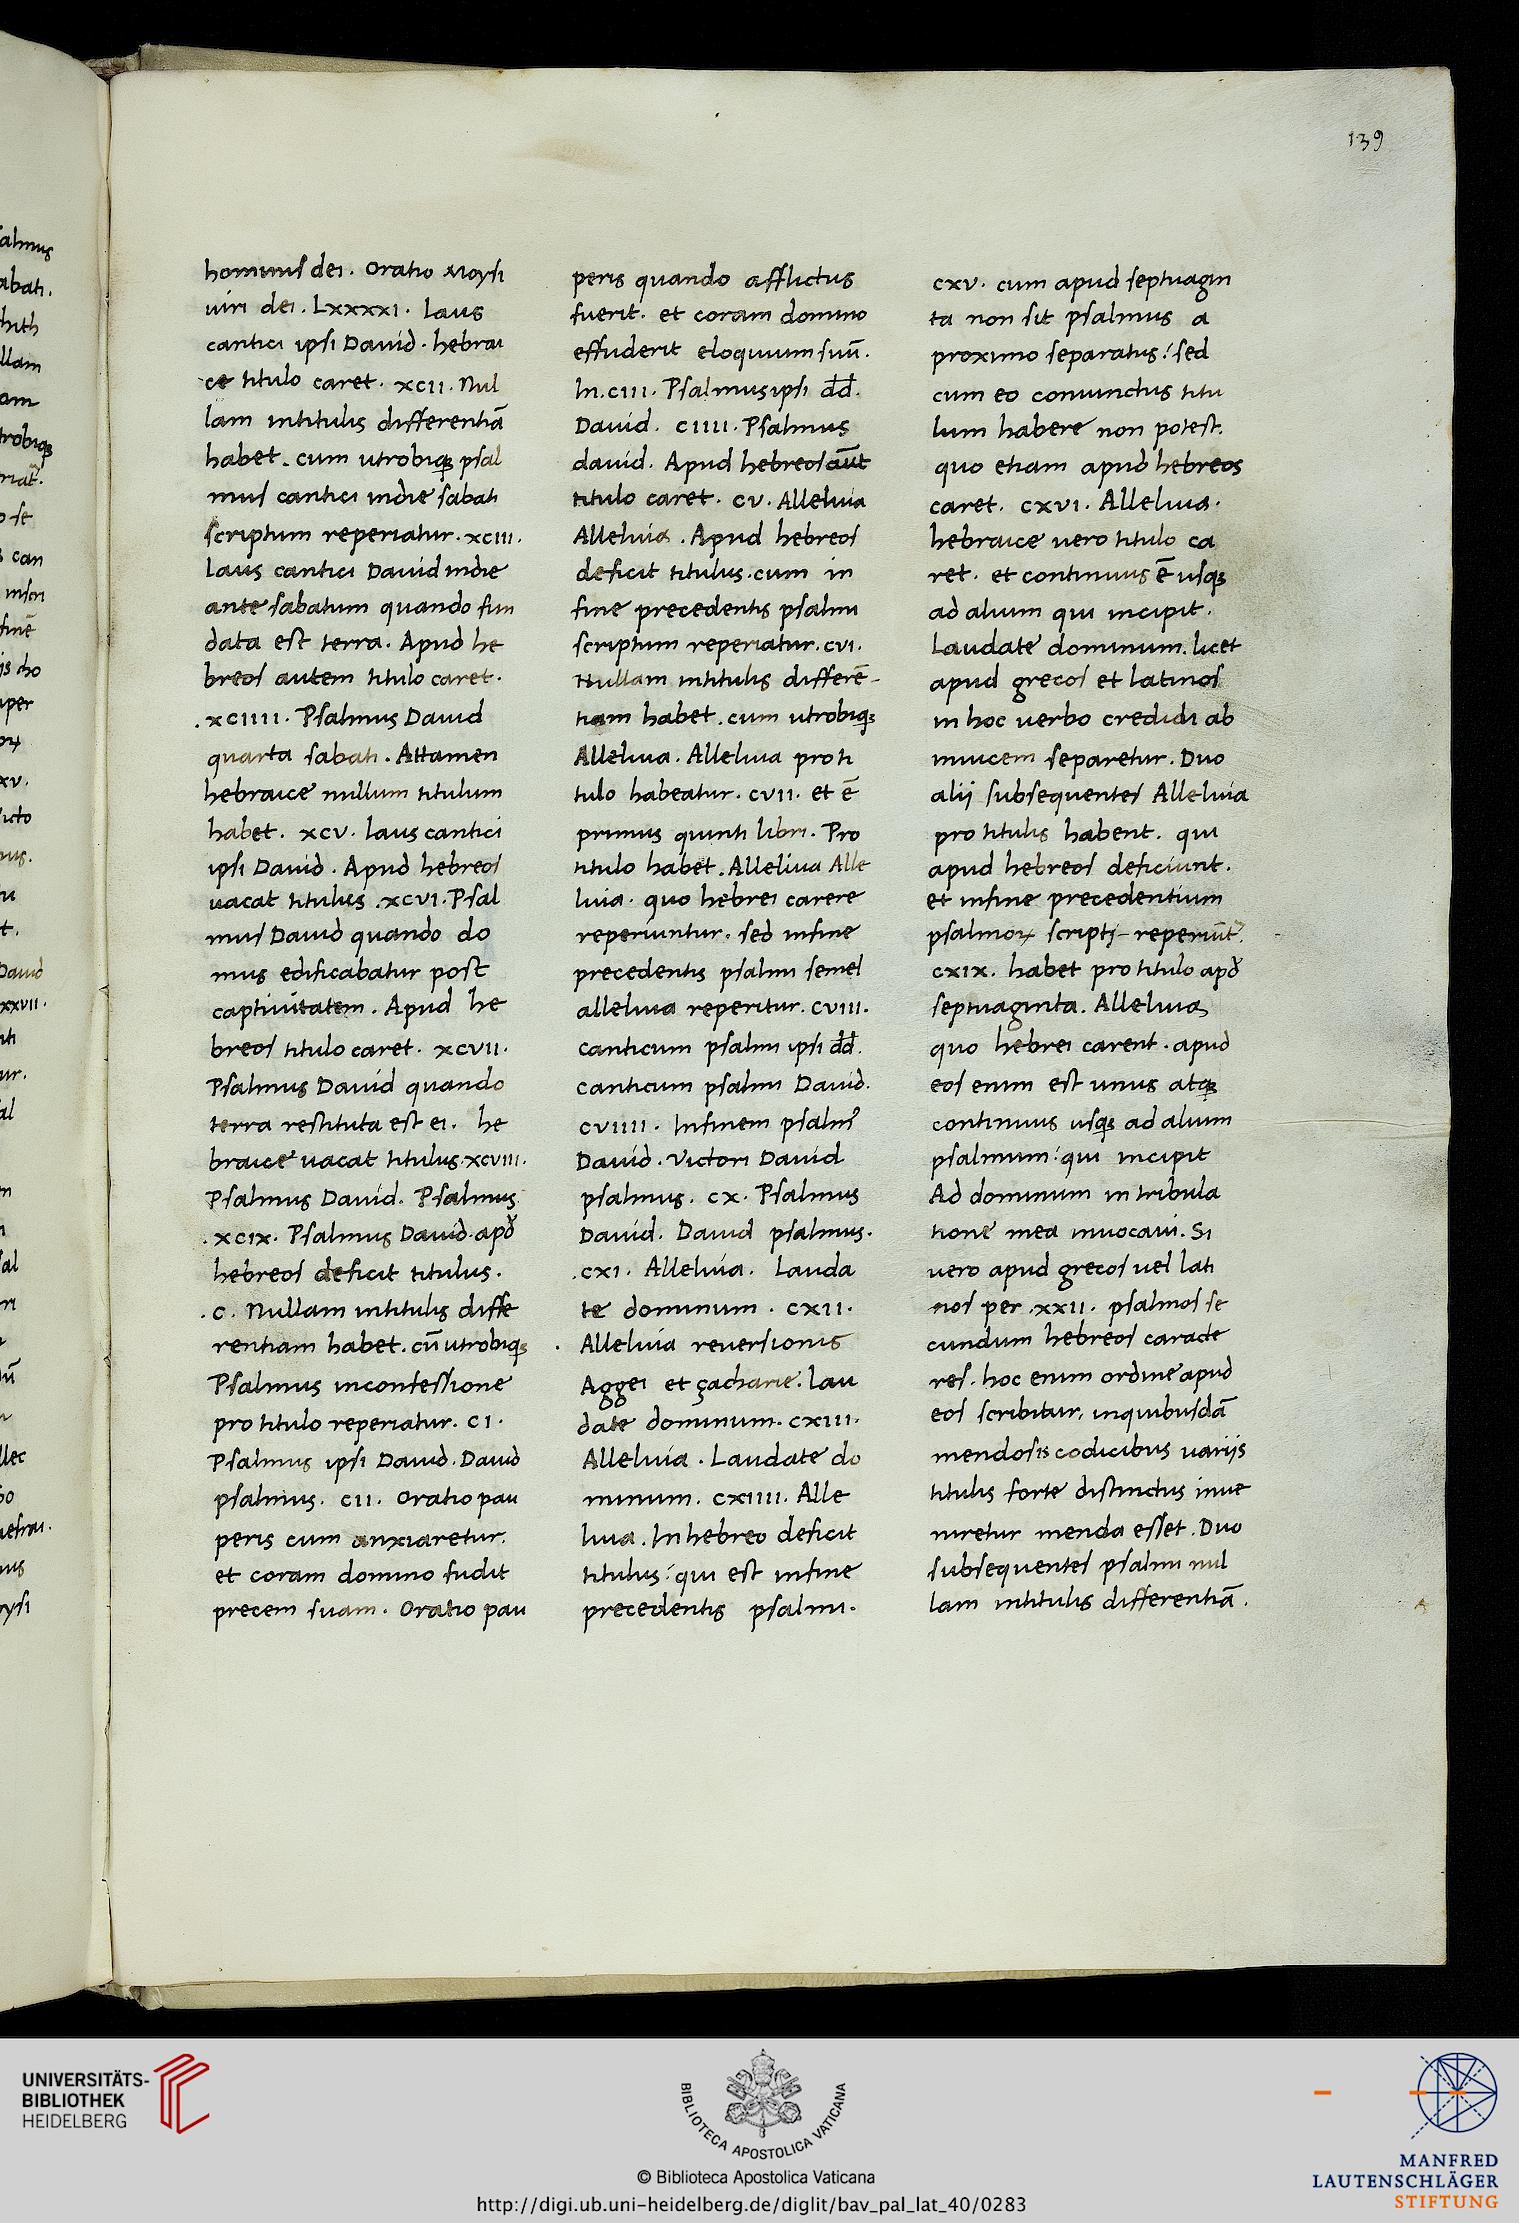 139
hominis dei. Oratio Moysi
uiri dei. Lxxxxi. Laus
cantici ipsi Dauid. hebrai
ce titulo caret. xcii. Nul
lam intitulis differentiā
habet. cum utrobiq; psal
mus cantici indie sabati
scriptum reperiatur. xciii.
Laus cantici Dauid indie
ante sabatum quando fun
data est terra. Apud he
breos autem titulo caret.
.xciiii. Psalmus Dauid
quarta sabati. Attamen
hebraice nullum titulum
habet. xcv. laus cantici
ipsi Dauid. Apud hebreos
uacat titulus .xcvi. Psal
mus Dauid quando do
mus edificabatur post
captiuitatem. Apud he
breos titulo caret. xcvii.
Psalmus Dauid quando
terra restituta est ei. he
braice uacat titulus. xcviii.
Psalmus Dauid. Psalmus
.xcix. Psalmus Dauid. apđ
hebreos deficit titulus.
.c. Nullam intitulis diffe
rentiam habet. cū utrobiq;
Psalmus inconfessione
pro titulo reperiatur. ci.
Psalmus ipsi Dauid. Dauid
psalmus. cii. Oratio pau
peris cum anxiaretur.
et coram domino fudit
precem suam. Oratio pau
peris quando afflictus
fuerit. et coram domino
effuderit eloquium suū.
In. ciii. Psalmus ipsi đđ.
Dauid. ciiii. Psalmus
dauid. Apud hebreos aūt
titulo caret. cv. Alleluia
Alleluia. Apud hebreos
deficit titulus. cum in
fine precedentis psalmi
scriptum reperiatur. cvi.
Nullam intitulis differē-
tiam habet. cum utrobiq;
Alleluia. Alleluia pro ti
tulo habeatur. cvii. et ē
primus quinti libri. Pro
titulo habet. Alleluia Alle
luia. quo hebrei carere
reperiuntur. sed infine
precedentis psalmi semel
alleluia reperitur. cviii.
canticum psalmi ipsi đđ.
canticum psalmi Dauid.
cviiii. Infinem psalm᾿
Dauid. Victori Dauid
psalmus. cx. Psalmus
Dauid. Dauid psalmus.
.cxi. Alleluia. Lauda
te dominum. cxii.
Alleluia reuersionis
Aggei et çacharie. lau
date dominum. cxiii.
Alleluia. Laudate do
minum. cxiiii. Alle
luia. In hebreo deficit
titulus: qui est infine
precedentis psalmi.
cxv. cum apud septuagin
ta non sit psalmus a
proximo separatus: sed
cum eo coniunctus titu
lum habere non potest.
quo etiam apud hebreos
caret. cxvi. Alleluia.
hebraice uero titulo ca
ret. et continuus ē usq;
ad alium qui incipit.
Laudate dominum. licet
apud grecos et latinos
in hoc uerbo credidi ab
inuicem separetur. Duo
alij subsequentes Alleluia
pro titulis habent. qui
apud hebreos deficiunt.
et infine precedentium
psalmoꝝ scripti reperiūt᾿.
cxix. habet pro titulo apđ
septuaginta. Alleluia
quo hebrei carent. apud
eos enim est unus atq;
continuus usq; ad alium
psalmum: qui incipit
Ad dominum in tribula
tione mea inuocaui. Si
uero apud grecos uel lati
nos per .xxii. psalmos se
cundum hebreos caracte
res. hoc enim ordine apud
eos scribitur, inquibusdā
mendosis codicibus variis
titulis forte distinctus inue
niretur menda esset. Duo
subsequentes psalmi nul
lam intitulis differentiā.
UNIVERSITÄTS-
BIBLIOTHEK
HEIDELBERG
BIBLIOTECA APOSTOLICA VATICANA
© Biblioteca Apostolica Vaticana
http://digi.ub.uni-heidelberg.de/diglit/bav_pal_lat_40/0283
MANFRED
LAUTENSCHLÄGER
STIFTUNG